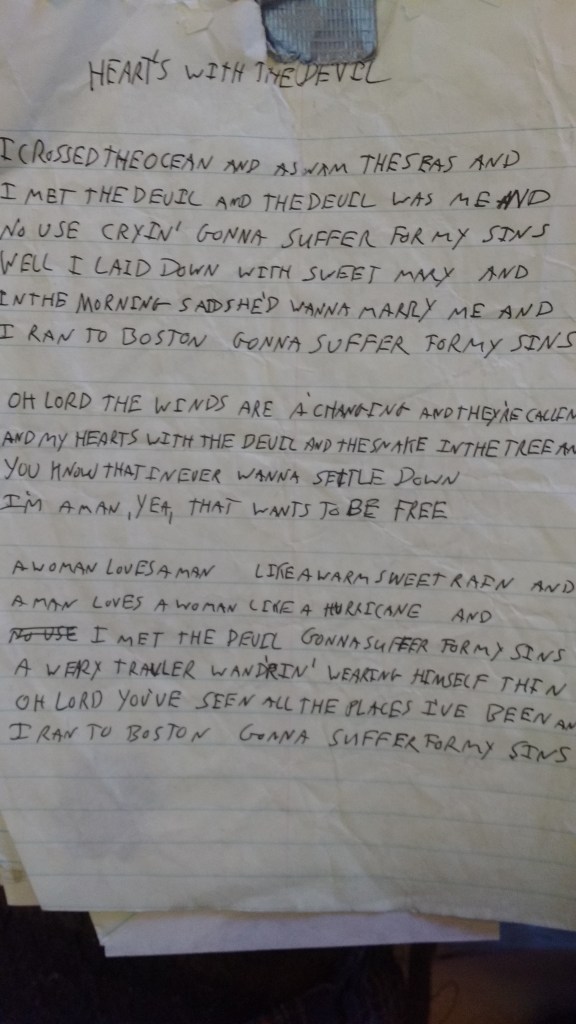 HEARTS WITH THE DEVIL
I CROSSED THE OCEAN AND A SWAM THE SEAS AND
I MET THE DEVIL AND THE DEVIL WAS ME AND
NO USE CRYIN' GONNA SUFFER FOR MY SINS
WELL I LAID DOWN WITH SWEET MARY AND
IN THE MORNING SAID SHE'D WANNA MARRY ME AND
I RAN TO BOSTON GONNA SUFFER FOR MY SINS
OH LORD THE WINDS ARE A'CHANGING AND THEY'RE CALLEN
AND MY HEARTS WITH THE DEVIL AND THE SNAKE IN THE TREE AN
YOU KNOW THAT I NEVER WANNA SETTLE DOWN
I'M A MAN, YEA, THAT WANTS TO BE FREE
A WOMAN LOVES A MAN LIKE A WARM SWEET RAIN AND
A MAN LOVES A WOMAN LIKE A HURRICANE AND
NO USE I MET THE DEVIL GONNA SUFFER FOR MY SINS
A WERY TRAVLER WANDRIN' WEARING HIMSELF THIN
OH LORD YOU'VE SEEN ALL THE PLACES I'VE BEEN AN
I RAN TO BOSTON GONNA SUFFER FOR MY SINS